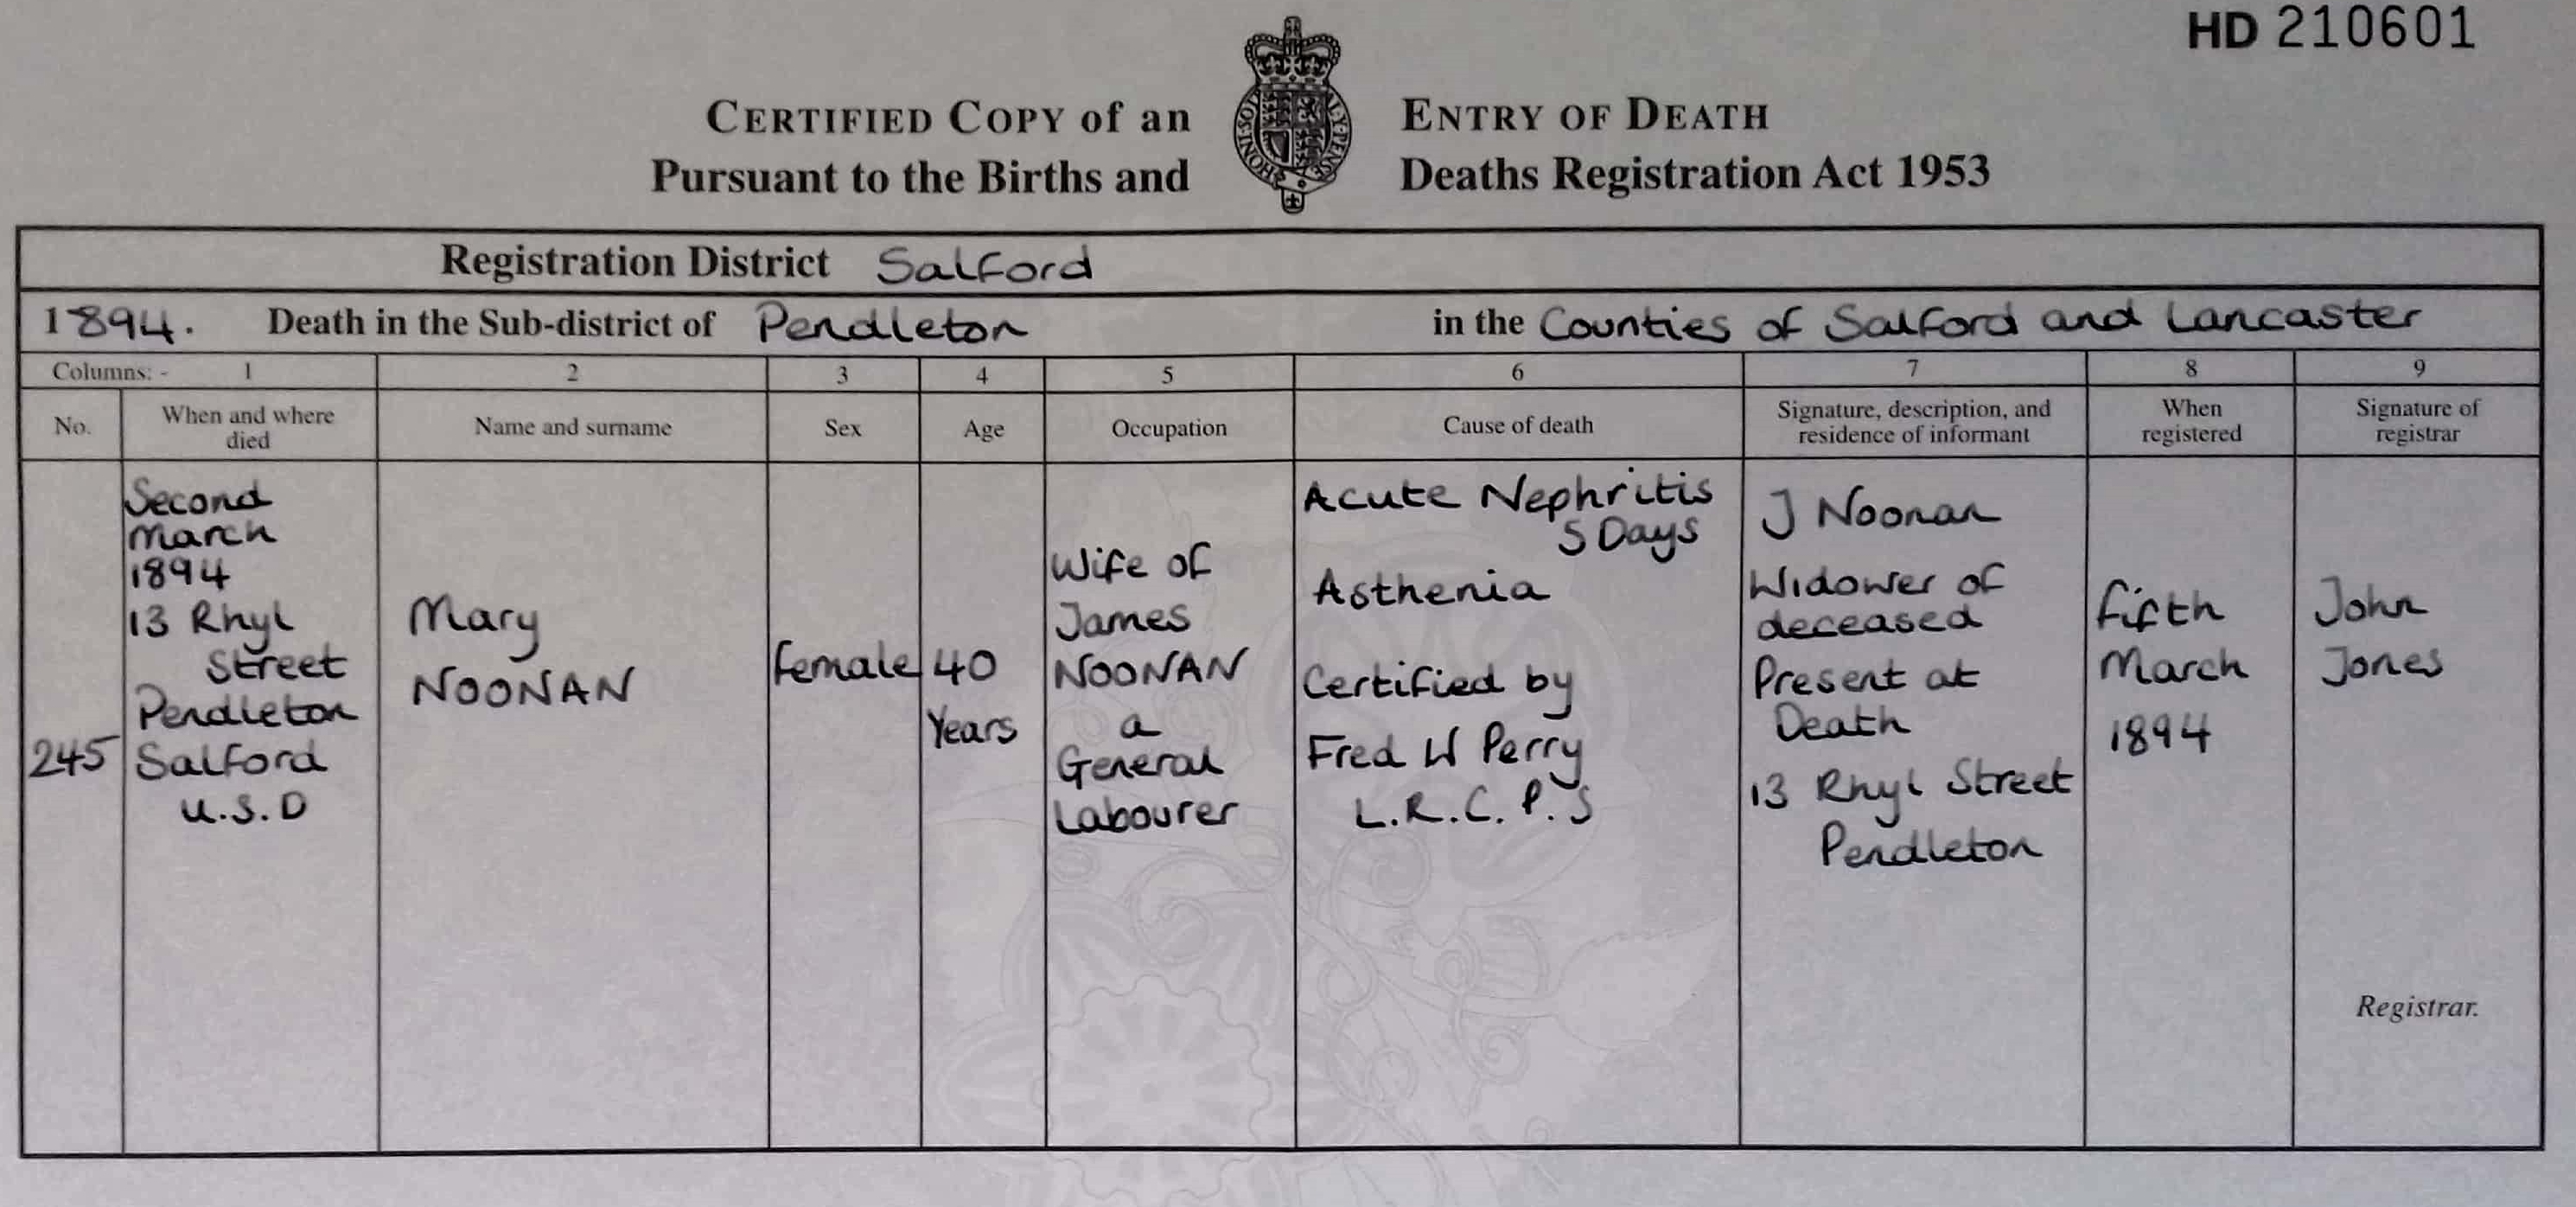 HD 210601
CERTIFIED COPY of an ENTRY OF DEATH
Pursuant to the Births and Deaths Registration Act 1953
Registration District Salford
1894. Death in the Sub-district of Pendleton in the Counties of Salford and Lancaster
Columns: - 1 2 3 4 5 6 7 8 9
No.
When and where
died
Name and surname
Sex
Age
Occupation
Cause of death
Signature, description, and
residence of informant
When
registered
Signature of
registrar
245
Second
March
1894
13 Rhyl
Street
Pendleton
Salford
U.S.D
Mary
NOONAN
Female
40
Years
Wife of
James
NOONAN
a
General
Labourer
Acute Nephritis
5 Days
Asthenia
Certified by
Fred W Perry
L.R.C.P.S
J Noonan
Widower of
deceased
Present at
Death
13 Rhyl Street
Pendleton
Fifth
March
1894
John
Jones
Registrar.